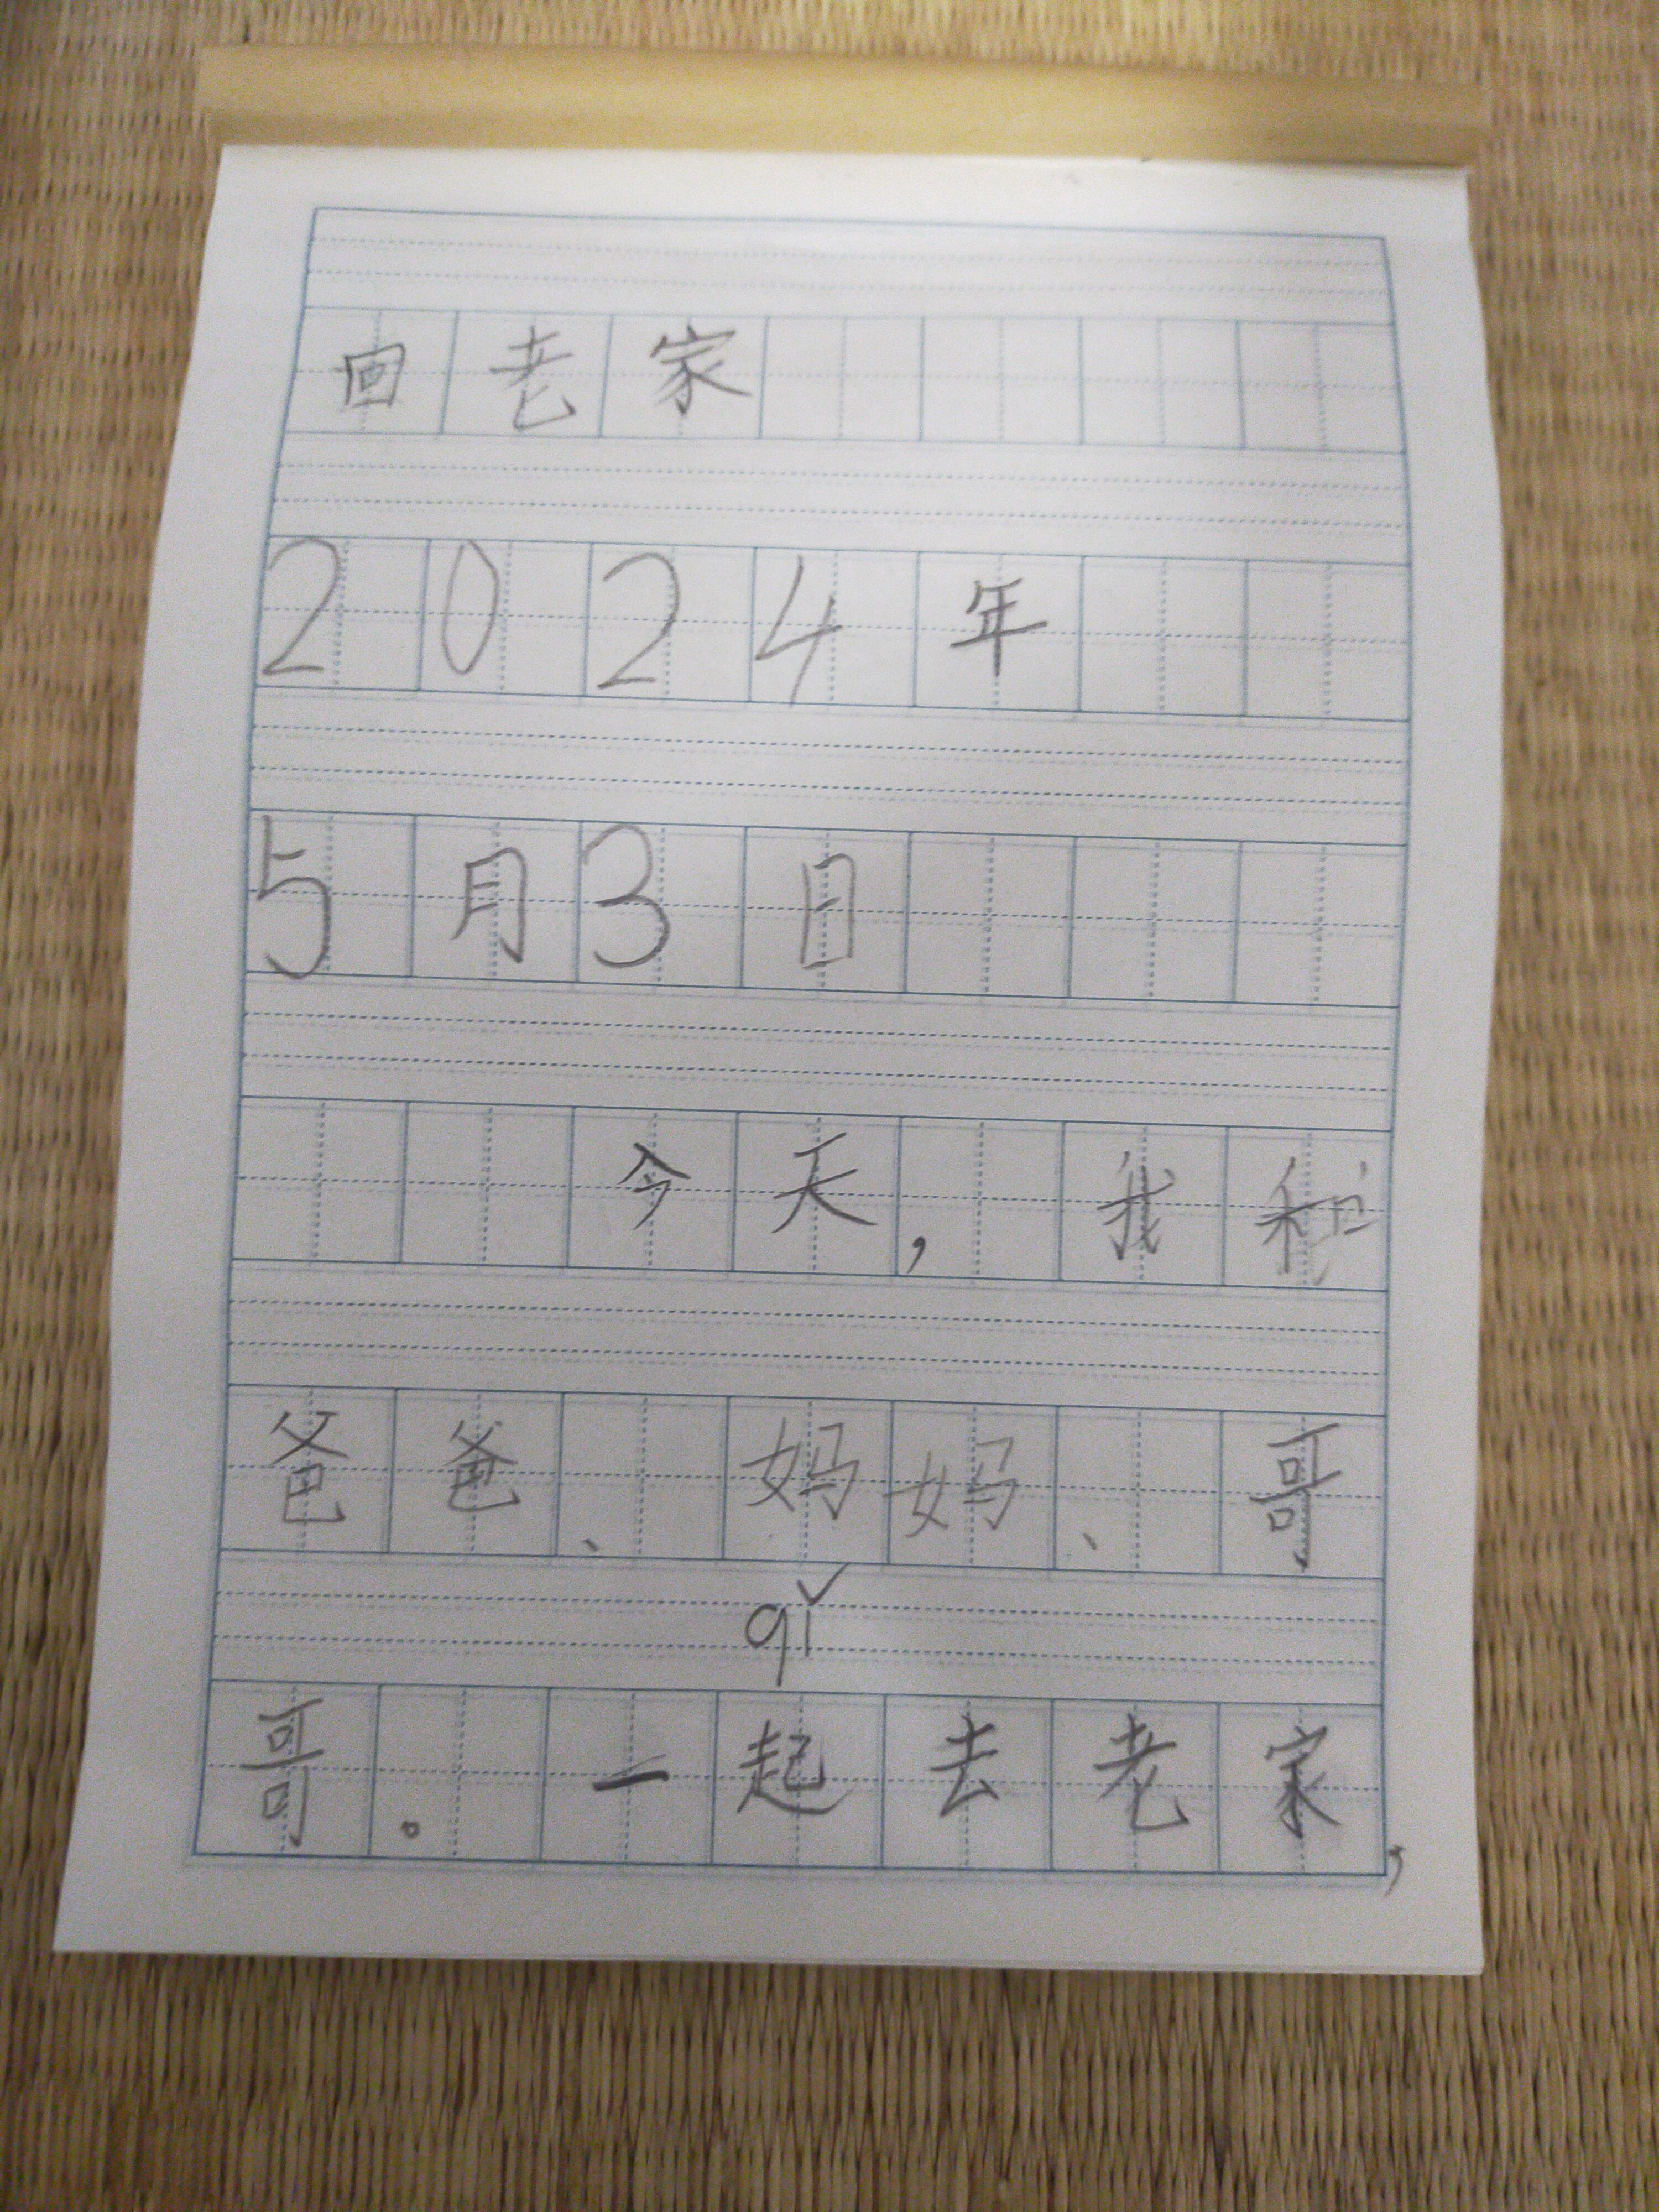 回老家
2024年
5月3日
今天，我和
爸爸、妈妈、哥
qǐ
哥。一起去老家，